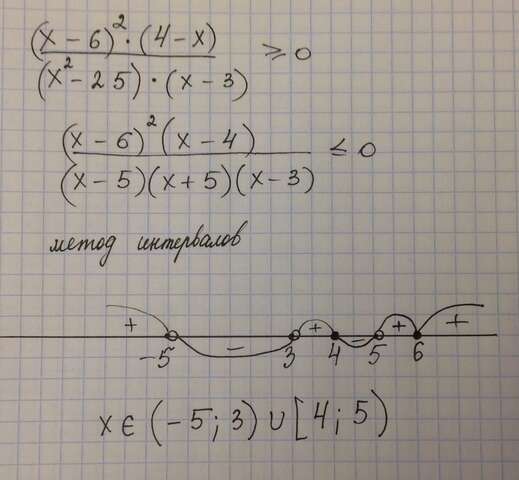 (x - 6)² · (4 - x)
(x² - 25) · (x - 3)
≥ 0
(x - 6)² (x - 4)
(x - 5)(x + 5)(x - 3)
≤ 0
метод интервалов
+ − + − + +
-5 3 4 5 6
x ∈ (-5; 3) ∪ [4; 5)